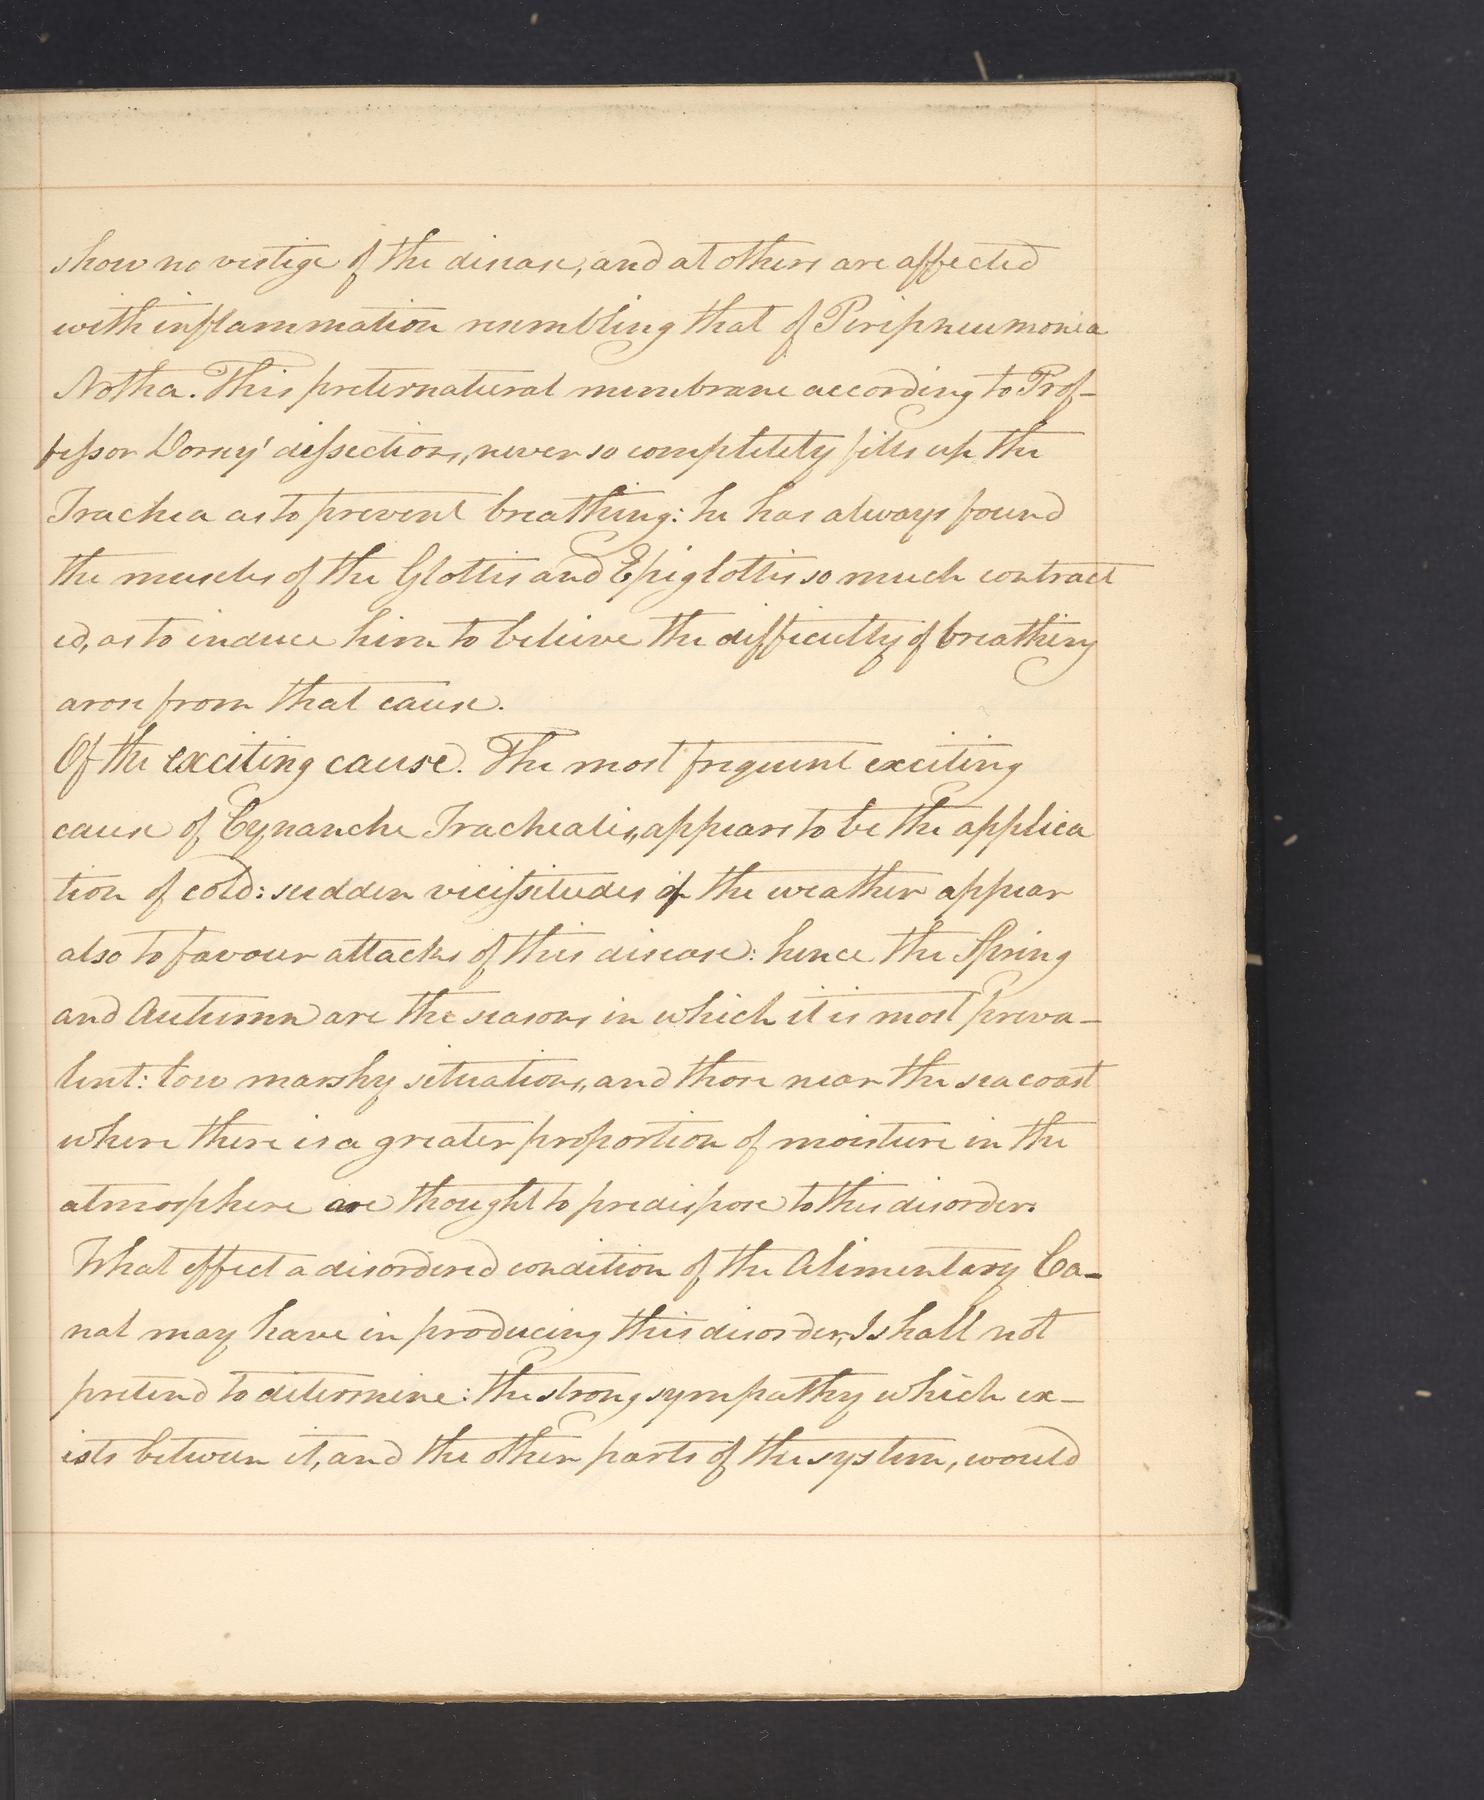 show no vestige of the disease, and at others are affected
with inflammation resembling that of Peripneumonia
Notha. This preternatural membrane according to Prof-
fessor Dorsey' dissections, never so completely fills up the
Trachea as to prevent breathing: he has always found
the muscles of the Glottis and Epiglottis so much contract
ed, as to induce him to believe the difficulty of breathing
arose from that cause.
Of the exciting cause. The most frequent exciting
cause of Cynanche Trachealis, appears to be the applica
tion of cold: sudden vicissitudes of the weather appear
also to favour attacks of this disease: hence the Spring
and Autumn are the seasons in which it is most preva-
lent: low marshy situations, and those near the sea coast
where there is a greater proportion of moisture in the
atmosphere are thought to predispose to this disorder.
What effect a disordered condition of the Alimentary Ca-
nal may have in producing this disorder, I shall not
pretend to determine: the strong sympathy which ex-
ists between it, and the other parts of the system, would